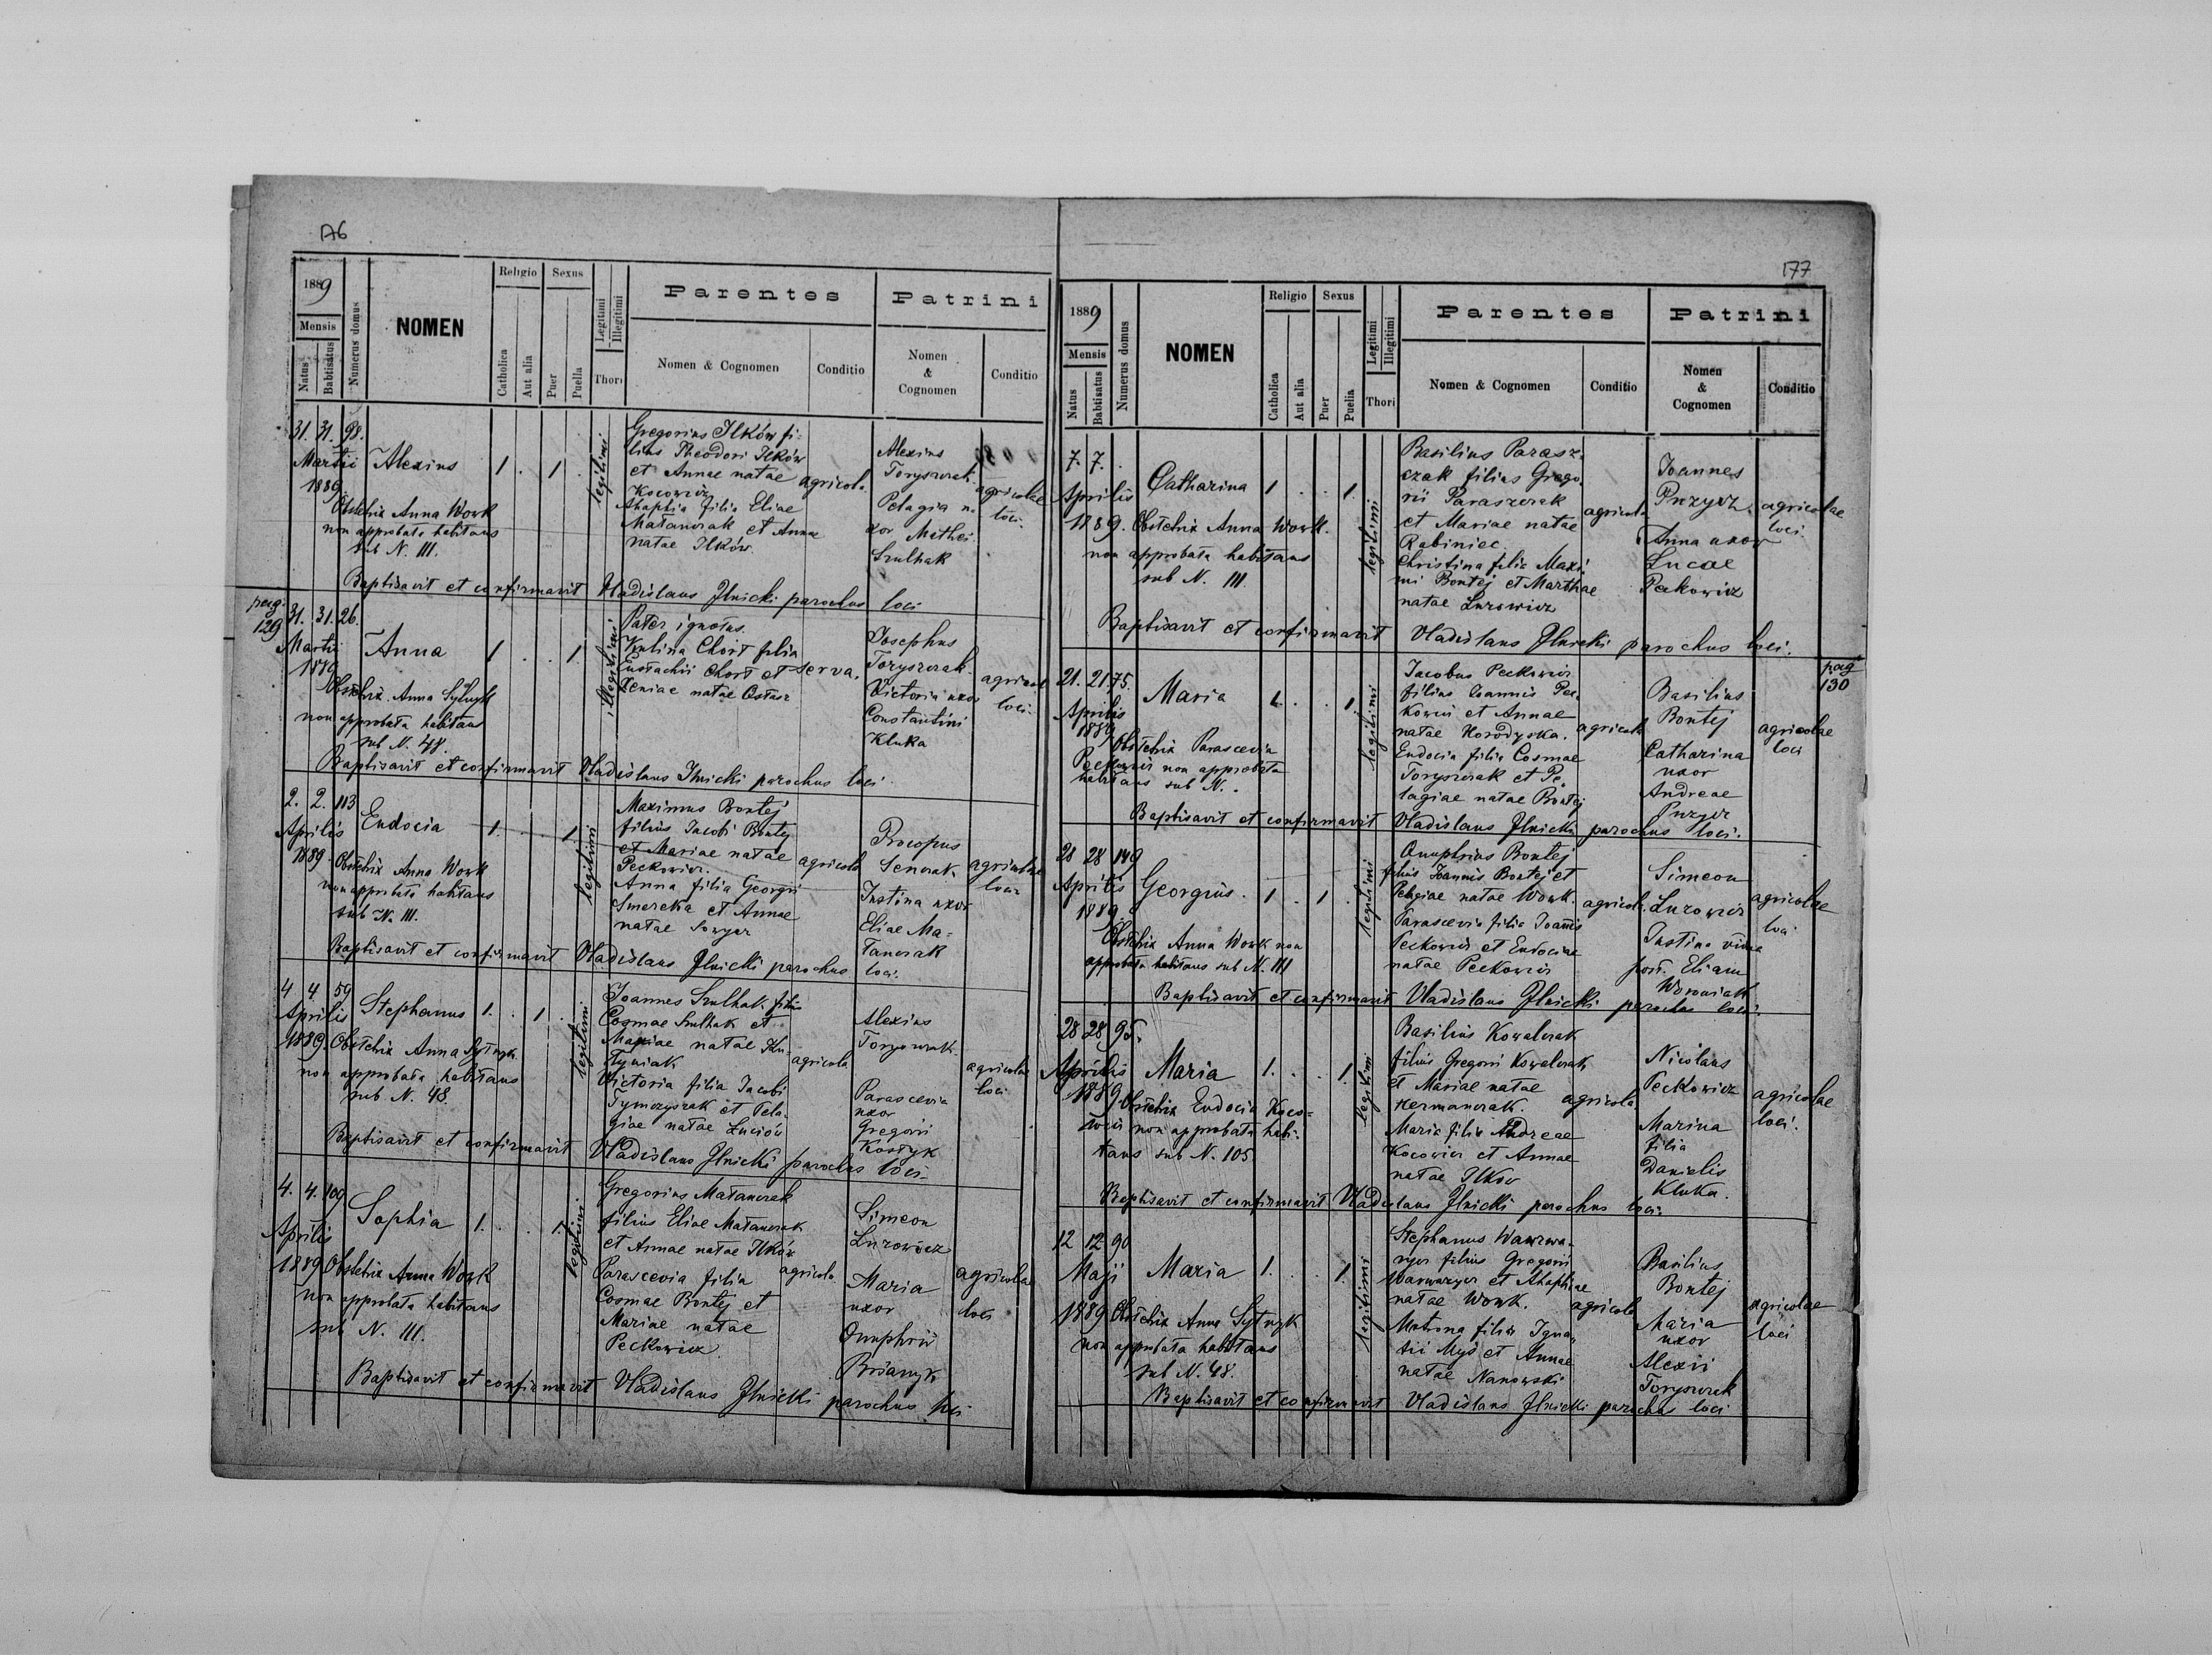 176
1889
Mensis
Natus
Babtisatus
Numerus domus
NOMEN
Religio
Catholica
Aut alia
Sexus
Puer
Puella
Legitimi
Illegitimi
Thori
Parentes
Nomen & Cognomen
Conditio
Patrini
Nomen
&
Cognomen
Conditio
31. 31. 98.
Martii
1889
Alexius 1. 1.
Obstetrix Anna Work
non approbata habitans
sub N. 111.
legitimi
Gregorius Ilków fi-
lius Theodori Ilków
et Annae natae
Kocowicz
Ahaphia filia Eliae
Matanczak et Annae
natae Ilków.
agricola
Alexius
Toryszczak
Pelagia u-
xor Mathei
Szulhak
agricolae
loci.
Baptisavit et confirmavit Vladislaus Ilnicki parochus loci
pag.
129
31. 31. 26.
Martii
1889
Anna 1. 1.
Obstetrix Anna Sytnyk
non approbata habitans
sub N. 48.
illegitimi
Pater ignotus.
Kulina Chort filia
Eustachii Chort et
Xeniae natae
serva.
Josephus
Toryszczak
Victoria uxor
Constantini
Kluka
agricol
loci.
Baptisavit et confirmavit Vladislaus Ilnicki parochus loci
2. 2. 113
Aprilis
1889
Eudocia 1. 1.
Obstetrix Anna Work
non approbata habitans
sub N. 111.
legitimi
Maximus Bontej
filius Jacobi Bontej
et Mariae natae
Peckowicz.
Anna filia Georgii
Smereka et Annae
natae
agricola
Procopus
Senczak
Justina uxor
Eliae Ma-
tanczak
agricolae
loci
Baptisavit et confirmavit Vladislaus Ilnicki parochus loci.
4 4. 59
Aprilis
1889.
Stephanus 1. 1.
Obstetrix Anna Sytnyk
non approbata habitans
sub N. 48
legitimi
Joannes Szulhak filius
Cosmae Szulhak et
Mariae natae
Victoria filia Jacobi
Tymczyszak et Pela-
giae natae Luciów
agricola
Alexius
Toryszczak
Parascevia
uxor
Gregorii
Kostyk
agricolae
loci
Baptisavit et confirmavit Vladislaus Ilnicki parochus loci.
4. 4. 109
Aprilis
1889
Sophia 1. 1.
Obstetrix Anna Work
non approbata habitans
sub N. 111.
legitimi.
Gregorius Matanczak
filius Eliae Matanczak
et Annae natae Ilków
Parascevia filia
Cosmae Bontej et
Mariae natae
Peckowicz
agricola
Simeon
Lurowicz
Maria
uxor
Onuphrii
agricolae
loci
Baptisavit et confirmavit Vladislaus Ilnicki parochus loci
177
1889
Mensis
Natus
Babtisatus
Numerus domus
NOMEN
Religio
Catholica
Aut alia
Sexus
Puer
Puella
Legitimi
Illegitimi
Thori
Parentes
Nomen & Cognomen
Conditio
Patrini
Nomen
&
Cognomen
Conditio
7. 7.
Aprilis
1889.
Catharina 1. 1.
Obstetrix Anna Work
non approbata habitans
sub N. 111.
legitimi
Basilius Parasz-
czak filius Grego-
rii Paraszczak
et Mariae natae
Rabiniec
Christina filia Maxi-
mi Bontej et Marthae
natae Lurowicz
agricola
Joannes
Puzycz
Anna uxor
Lucae
Peckowicz
agricolae
loci.
Baptisavit et confirmavit Vladislaus Ilnicki parochus loci.
pag
130
21. 21 75.
Aprilis
1889
Maria 1. 1.
Obstetrix Parascevia
Peckowicz non approbata
habitans sub N. .
legitimi
Jacobus Peckowicz
filius Joannis Pec-
kowicz et Annae
natae Horodyska.
Eudocia filia Cosmae
Toryszczak et Pe-
lagiae natae Bontej
agricola
Basilius
Bontej
Catharina
uxor
Andreae
Puzycz
agricolae
loci
Baptisavit et confirmavit Vladislaus Ilnicki parochus loci.
28 28 149
Aprilis
1889.
Georgius. 1. 1.
Obstetrix Anna Work non
approbata habitans sub N. 111
legitimi
Onuphrius Bontej
filius Joannis Bontej et
Pelagiae natae Work.
Parascevia filia Joannis
Peckowicz et Eudociae
natae Peckowicz
agricola.
Simeon
Lurowicz
Justina vidua
post. Eliam
Woroniak
agricolae
loci
Baptisavit et confirmavit Vladislaus Ilnicki parochus loci.
28 28 95.
Aprilis
1889
Maria 1. 1.
Obstetrix Eudocia Koco-
wicz non approbata habi-
tans sub N. 105
legitimi
Basilius Kowalczak
filius Gregorii Kowalczak
et Mariae natae
Hermanczak.
Maria filia Andreae
Kocowicz et Annae
natae Ilkow
agricola.
Nicolaus
Peckowicz
Marina
filia
Danielis
Kluka.
agricolae
loci.
Baptisavit et confirmavit Vladislaus Ilnicki parochus loci.
12 12 90
Maji
1889
Maria 1. 1.
Obstetrix Anna Sytnyk
non approbata habitans
sub N. 48.
legitimi
Stephanus
filius Gregorii
et Ahaphiae
natae Work.
Matrona filia Igna-
tii Myś et Annae
natae Nanowski
agricola
Basilius
Bontej
Maria
uxor
Alexii
Toryszczak
agricolae
loci
Baptisavit et confirmavit Vladislaus Ilnicki parochus loci